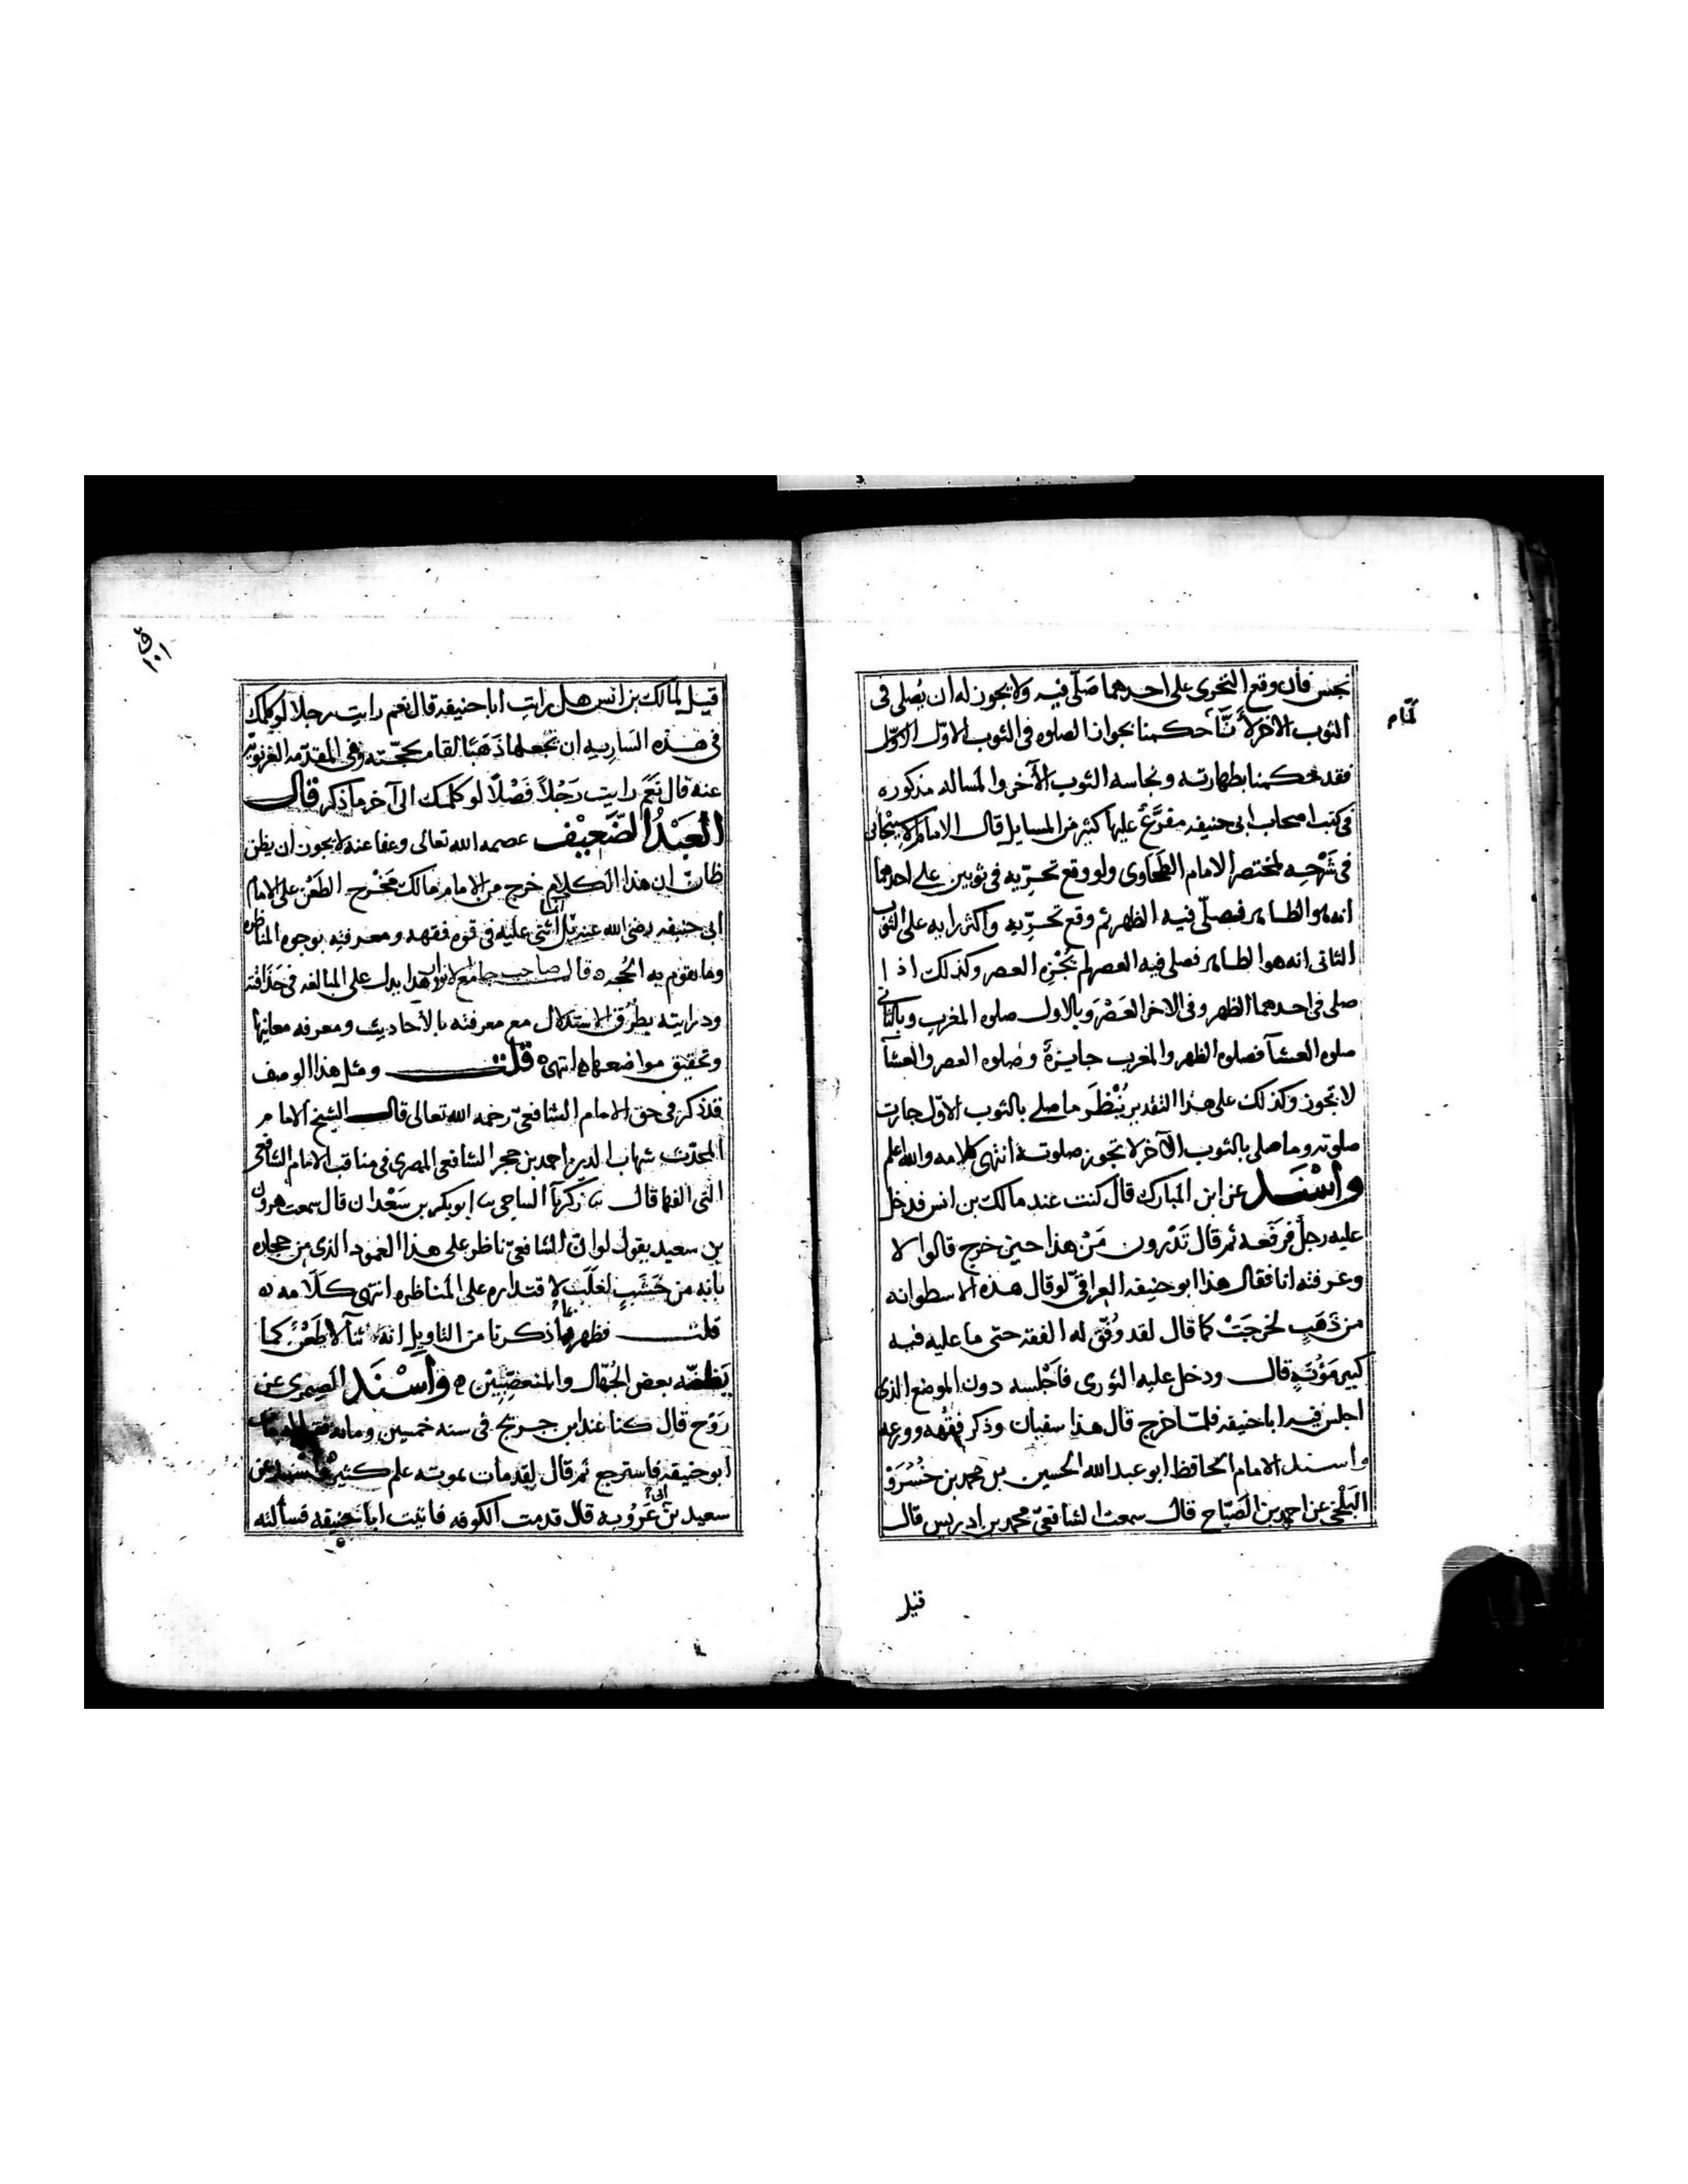 نجس فان وقع التحرى على احدهما صلّى فيه ولا يجوز له ان يُصلى فى
الثوب الآخر لأنّا حكمنا بجواز الصلوه فى الثوب الاوّل الاوّل
فقد حكمنا بطهارته ونجاسه الثوب الآخر والمساله مذكوره
فى كتب اصحاب ابى حنيفه مفرَّعٌ عليها كثير من المسايل قال الامام الاسبيجابى
فى شَرْحِه لمختصر الامام الطَحاوى ولو وقع تحرِّيه فى ثوبين على احدهما
انه هو الطاهر فصلّى فيه الظهر ثم وقع تحرِّيه واكثر رايه على الثوب
الثانى انه هو الطاهر فصلى فيه العصر لم يُجْزِه العصر وكذلك اذا
صلى فى احدهما الظهر وفى الاخر العَصْرَ وبالاول صلوه المغرب وبالثانى
صلوه العشآ فصلوه الظهر والمغرب جايزةٌ وصلوه العصر والعشآ
لا تجوز وكذلك على هذا التقدير يُنْظَر ما صلى بالثوب الاوّل جازت
صلوته وما صلى بالثوب الآخر لا تجوز صلوته انتهى كلامه والله اعلم
وأسْنَد عن ابن المبارك قال كنت عند مالك بن انس فدخل
عليه رجلٌ فرفعه ثم قال تَدْرون مَنْ هذا حين خرج قالوا لا
وعرفته انا فقال هذا ابو حنيفه العراقىّ لو قال هذه الاسطوانه
من ذَهَبٍ لخرجَتْ كما قال لقد وُفّق له الفقه حتى ما عليه فيه
كبير مَؤُنَةٍ قال ودخل عليه الثورى فأجْلسه دون الموضع الذى
اجلس فيه ابا حنيفه فلمّا خرج قال هذا سفيان وذكر فقهه وورعه
واسند الامام الحافظ ابو عبد الله الحسين بن محمد بن خُسْرَوْ
البَلْخى عن احمد بن الصَبّاح قال سمعت الشافعىّ محمد بن ادريس قال
قيل
١٠١
قيل لمالك بن انس هل رايت ابا حنيفه قال نعم رايت رجلا لو كلمك
فى هذه السَاريه ان يجعلها ذَهَبًا لقام بحجّته وفى المقدّمه الغزنويّه
عنه قال نَعَم رايت رَجُلاً فَضْلًا لو كلمك الى آخر ما ذكر قال
العَبْدُ الضّعِيْف عصمه الله تعالى وعفا عنه لا يجوز ان يظن
ظانّ ان هذا الكلام خرج من الامام مالك مَخْرج الطَعْن على الامام
ابى حنيفه رضى الله عنه بل انما اثنى عليه فى قوه فقهه ومعرفته بوجوه المناظره
وما يقوم به الحُجه قال صاحب جامع الانوار هذا يدل على المبالغه فى حَذَاقته
ودرايته بطُرُق الاستدلال مع معرفته بالأحاديث ومعرفه معانيها
وتحقيق مواضعها انتهى قلت ومثل هذا الوصف
قد ذكر فى حق الامام الشافعىّ رحمه الله تعالى قال الشيخ الامام
المحدّث شهاب الدين احمد بن حجر الشافعى المصرى فى مناقب الامام الشافعى
التى الفها قال زكريآ الساجى ابو بكر بن سَعْدان قال سمعت هرون
بن سعيد يقول لو انّ الشافعىّ ناظر على هذا العمود الذى من حجاره
بانه من خَشَبٍ لغَلَبَ لاقتداره على المناظره انتهى كَلَامه
قلت فظهر بما ذكرنا من التاويل انه ثنآ لا طَعْنٌ كما
يَظنّه بعض الجُهّال والمتعصّبِيْن وأسْنَد الصيمرى عن
رَوْح قال كنا عند ابن جريج فى سنه خمسين ومايه مات
ابو حنيفه فاسترجع ثم قال لقد مات بموته علم كثير عن
سعيد بن ابى عَرُوبه قال قدمت الكوفه فاتيت ابا حنيفه فسألته